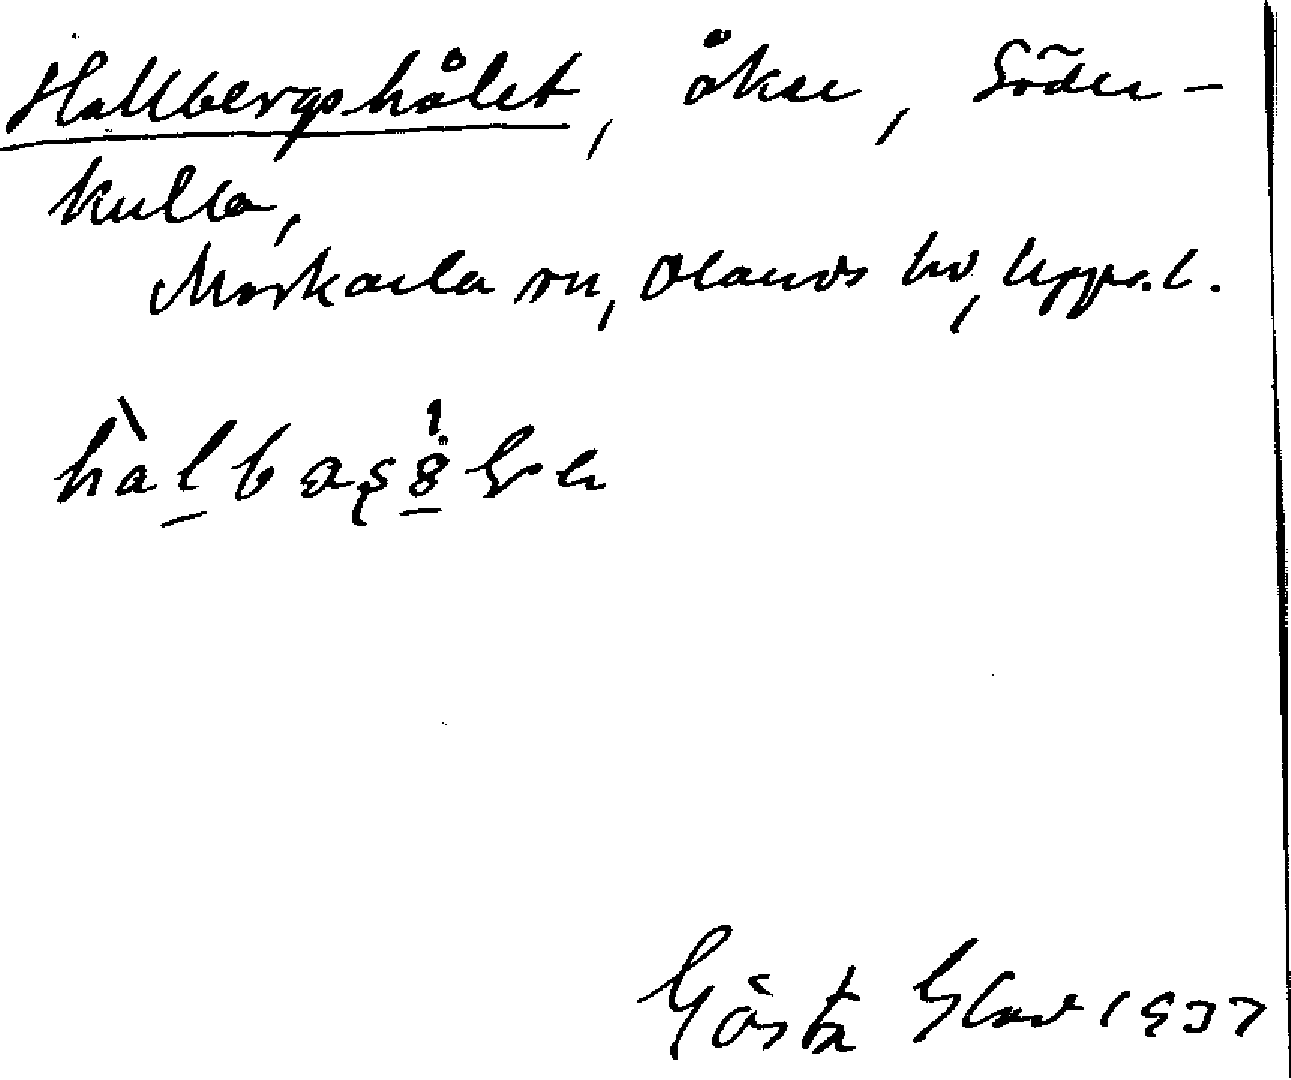 Hallbergshålet, åker, Söder-
kulla,
Morkarla sn, Olands hd, Upps. l.
Gösta 1937